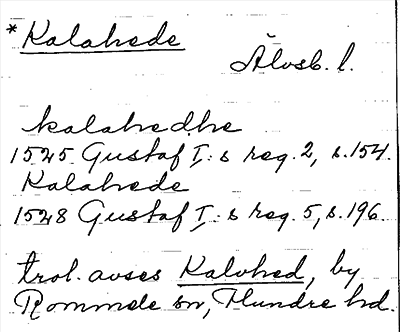 *Kalahede
Älvsb. l.
kalahedhe
1525 Gustaf I:s reg. 2, s. 154.
Kalahede
1528 Gustaf I:s reg. 5, s. 196.
trol. avses Kalvhed, by
Rommele sn, Flundre hd.